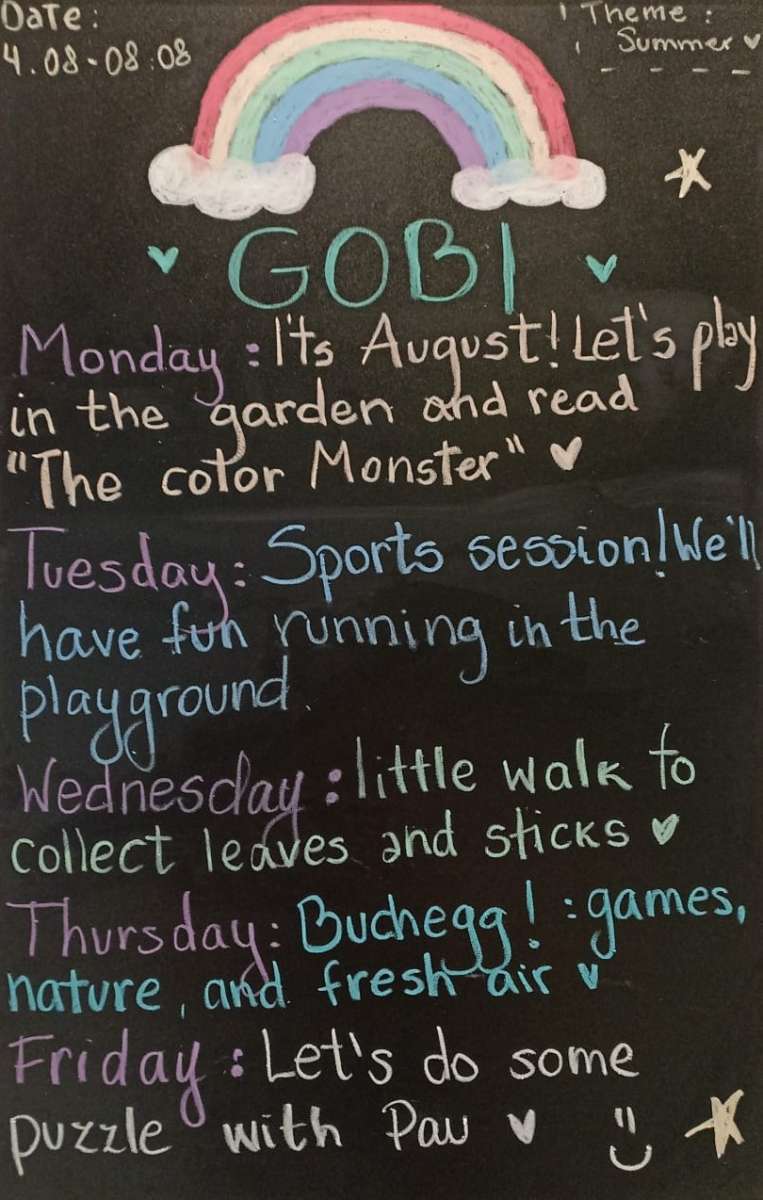 Date:
4.08-08:08
Theme:
Summer
GOBI
Monday: It's August! Let's play
in the garden and read
"The color Monster"
Tuesday: Sports session! We'll
have fun running in the
playground.
Wednesday: little walk to
collect leaves and sticks
Thursday: Buchegg! : games,
nature, and fresh air
Friday: Let's do some
puzzle with Pau